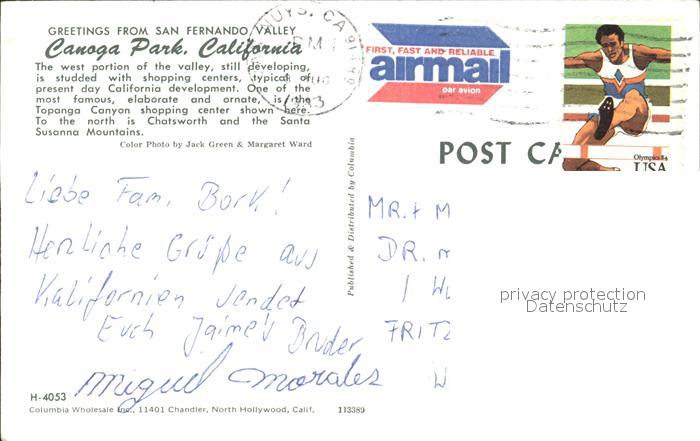 GREETINGS FROM SAN FERNANDO VALLEY
Canoga Park, California
The west portion of the valley, still developing,
is studded with shopping centers, typical of
present day California development. One of the
most famous, elaborate and ornate, is the
Topanga Canyon shopping center shown here.
To the north is Chatsworth and the Santa
Susanna Mountains.
Color Photo by Jack Green & Margaret Ward
NUYS, CA
PM
AUG
1983
FIRST, FAST AND RELIABLE
airmail
par avion
Olympics 84
USA
POST CA
Published & Distributed by Columbia
Liebe Fam. Bork!
Herzliche Grüße aus
Kalifornien sendet
Euch Jaime's Bruder
Miguel Morales
MR. + M
DR.
I W
FRITZ
W
privacy protection
Datenschutz
H-4053
Columbia Wholesale Inc., 11401 Chandler, North Hollywood, Calif. 113389